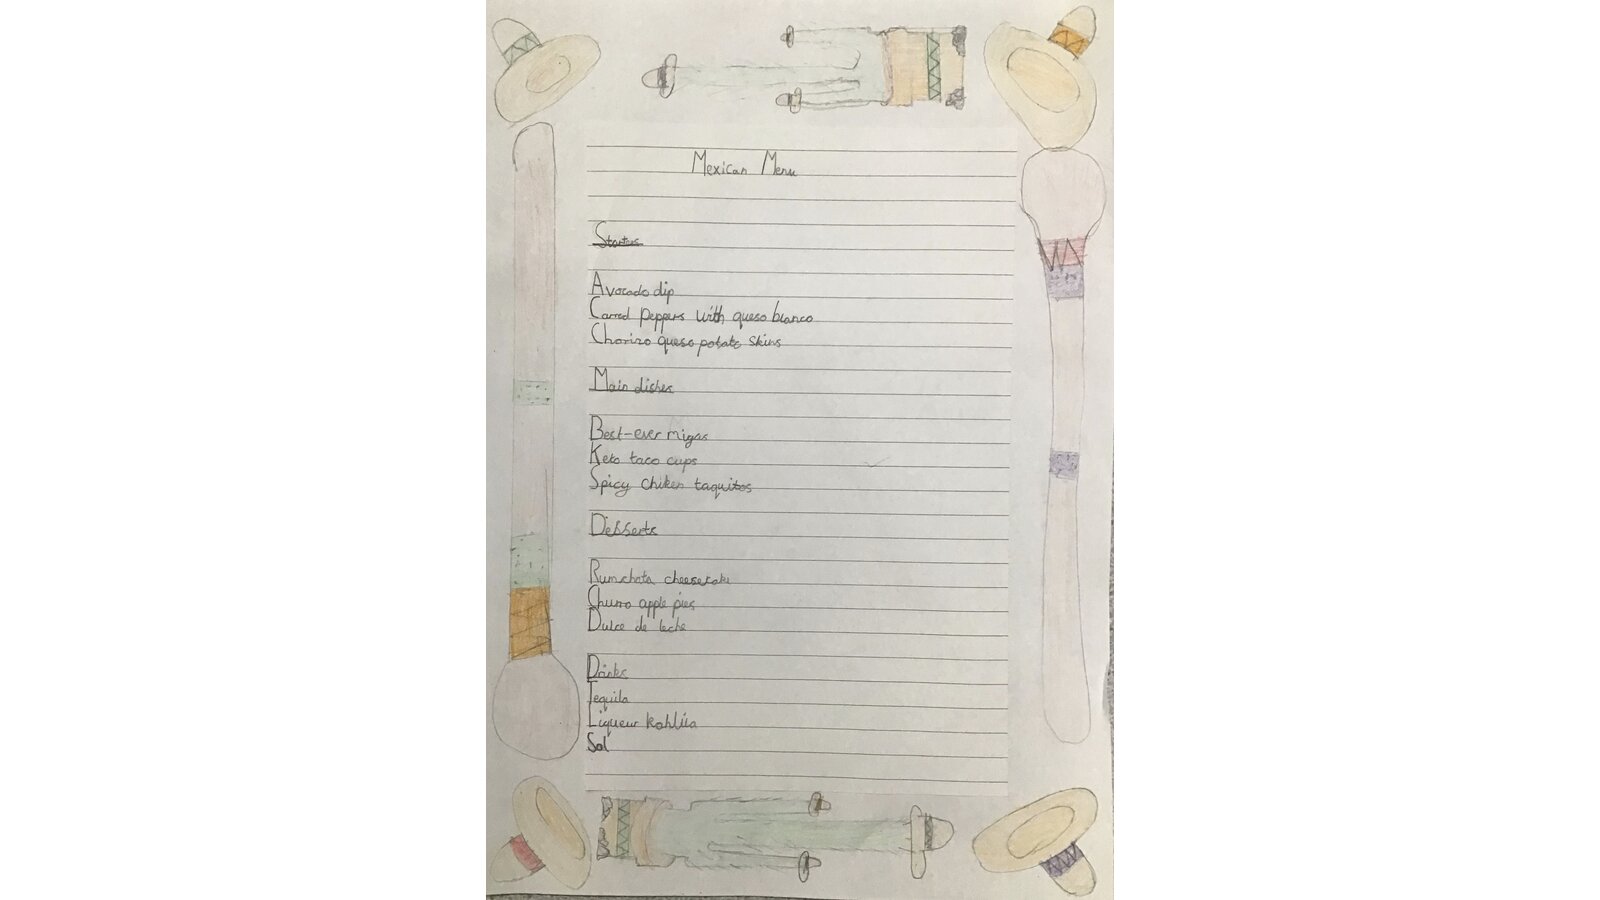 Mexican Menu
Starters
Avocado dip
Carred peppers with queso blanco
Chorizo queso potato skins
Main dishes
Best-ever migas
Keto taco cups
Spicy chiken taquitos
Desserts
Rumchata cheesecake
Churro apple pies
Dulce de leche
Drinks
Tequila
Liqueur kahlúa
Sol